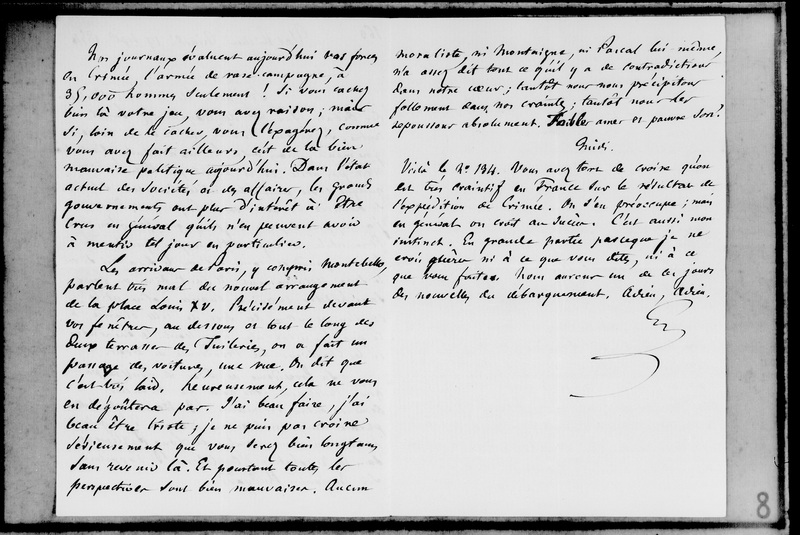 Nos journaux évaluent aujourd'hui vos forces
en Crimée l'armée de rase campagne, à
35,000 hommes seulement ! Si vous cachez
bien là votre jeu, vous avez raison ; mais
si, loin de le cacher, vous l'épagnez, comme
vous avez fait ailleurs c'est de la bien
mauvaise politique aujourd'hui. Dans l'état
actuel des Sociétés et des affaires, les grands
gouvernements ont plus d'intérêt à être
crus en général qu'ils n'en peuvent avoir
à mentir tel jour en particulier.
Les arrivans de Paris, y compris Montebello,
parlent très mal du nouvel arrangement
de la place Louis XV. Précisément devant
vos fenêtres, au dessous et tout le long des
deux terrasses des Tuileries, on a fait un
passage des voitures, une rue. On dit que
c'est très laid. heureusement, cela ne vous
en dégoûtera pas. J'ai beau faire, j'ai
beau être triste ; je ne puis pas croire
sérieusement que vous serez bien longtems
sans revenir là. Et pourtant toutes les
perspectives sont bien mauvaises. Aucun
moraliste, ni Montaigne, ni Pascal lui même,
n'a assez dit tout ce qu'il y a de contradictions
dans notre cœur ; tantôt nous nous précipitons
follement dans nos craintes ; tantôt nous les
repoussons absolument. Faibles ames et pauvre sort !
Midi.
Voilà le No 134. Vous avez tort de croire qu'on
est très craintif en France sur le résultat de
l'expédition de Crimée. On s'en préoccupe ; mais
en général on croit au succès. C'est aussi mon
instinct. En grande partie parceque je ne
crois guères ni à ce que vous dites, ni à ce
que vous faites. Nous aurons un de ces jours
des nouvelles du débarquement. Adieu, Adieu.
8